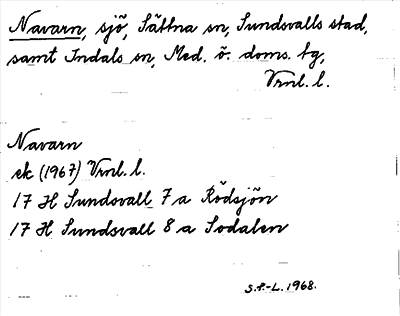 Navarn, sjö, Sättna sn, Sundsvalls stad,
samt Indals sn, Med. ö. doms. tg,
Vrnl. l.
Navarn
ek (1967) Vrnl. l.
17 H Sundsvall 7 a Rödsjön
17 H Sundsvall 8 a Sodalen
S.F.-L. 1968.